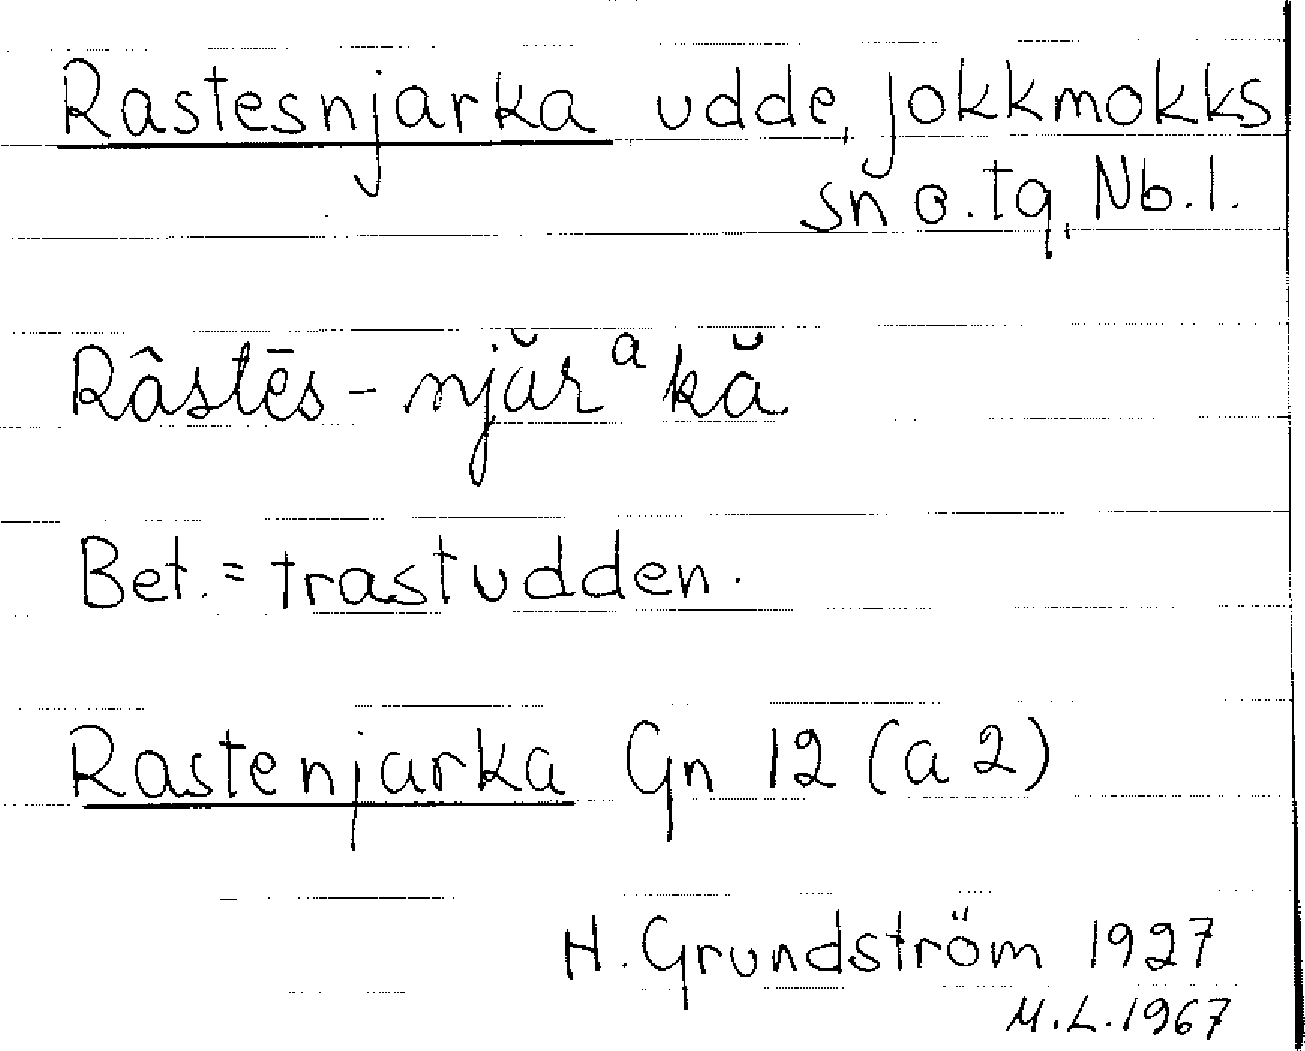 Rastesnjarka udde, Jokkmokks
sn o. tg, Nb.l.
Râstēs-njărᵃkă
Bet. = trastudden.
Rastenjarka Gn 12 (a2)
H. Grundström 1927
M.L. 1967